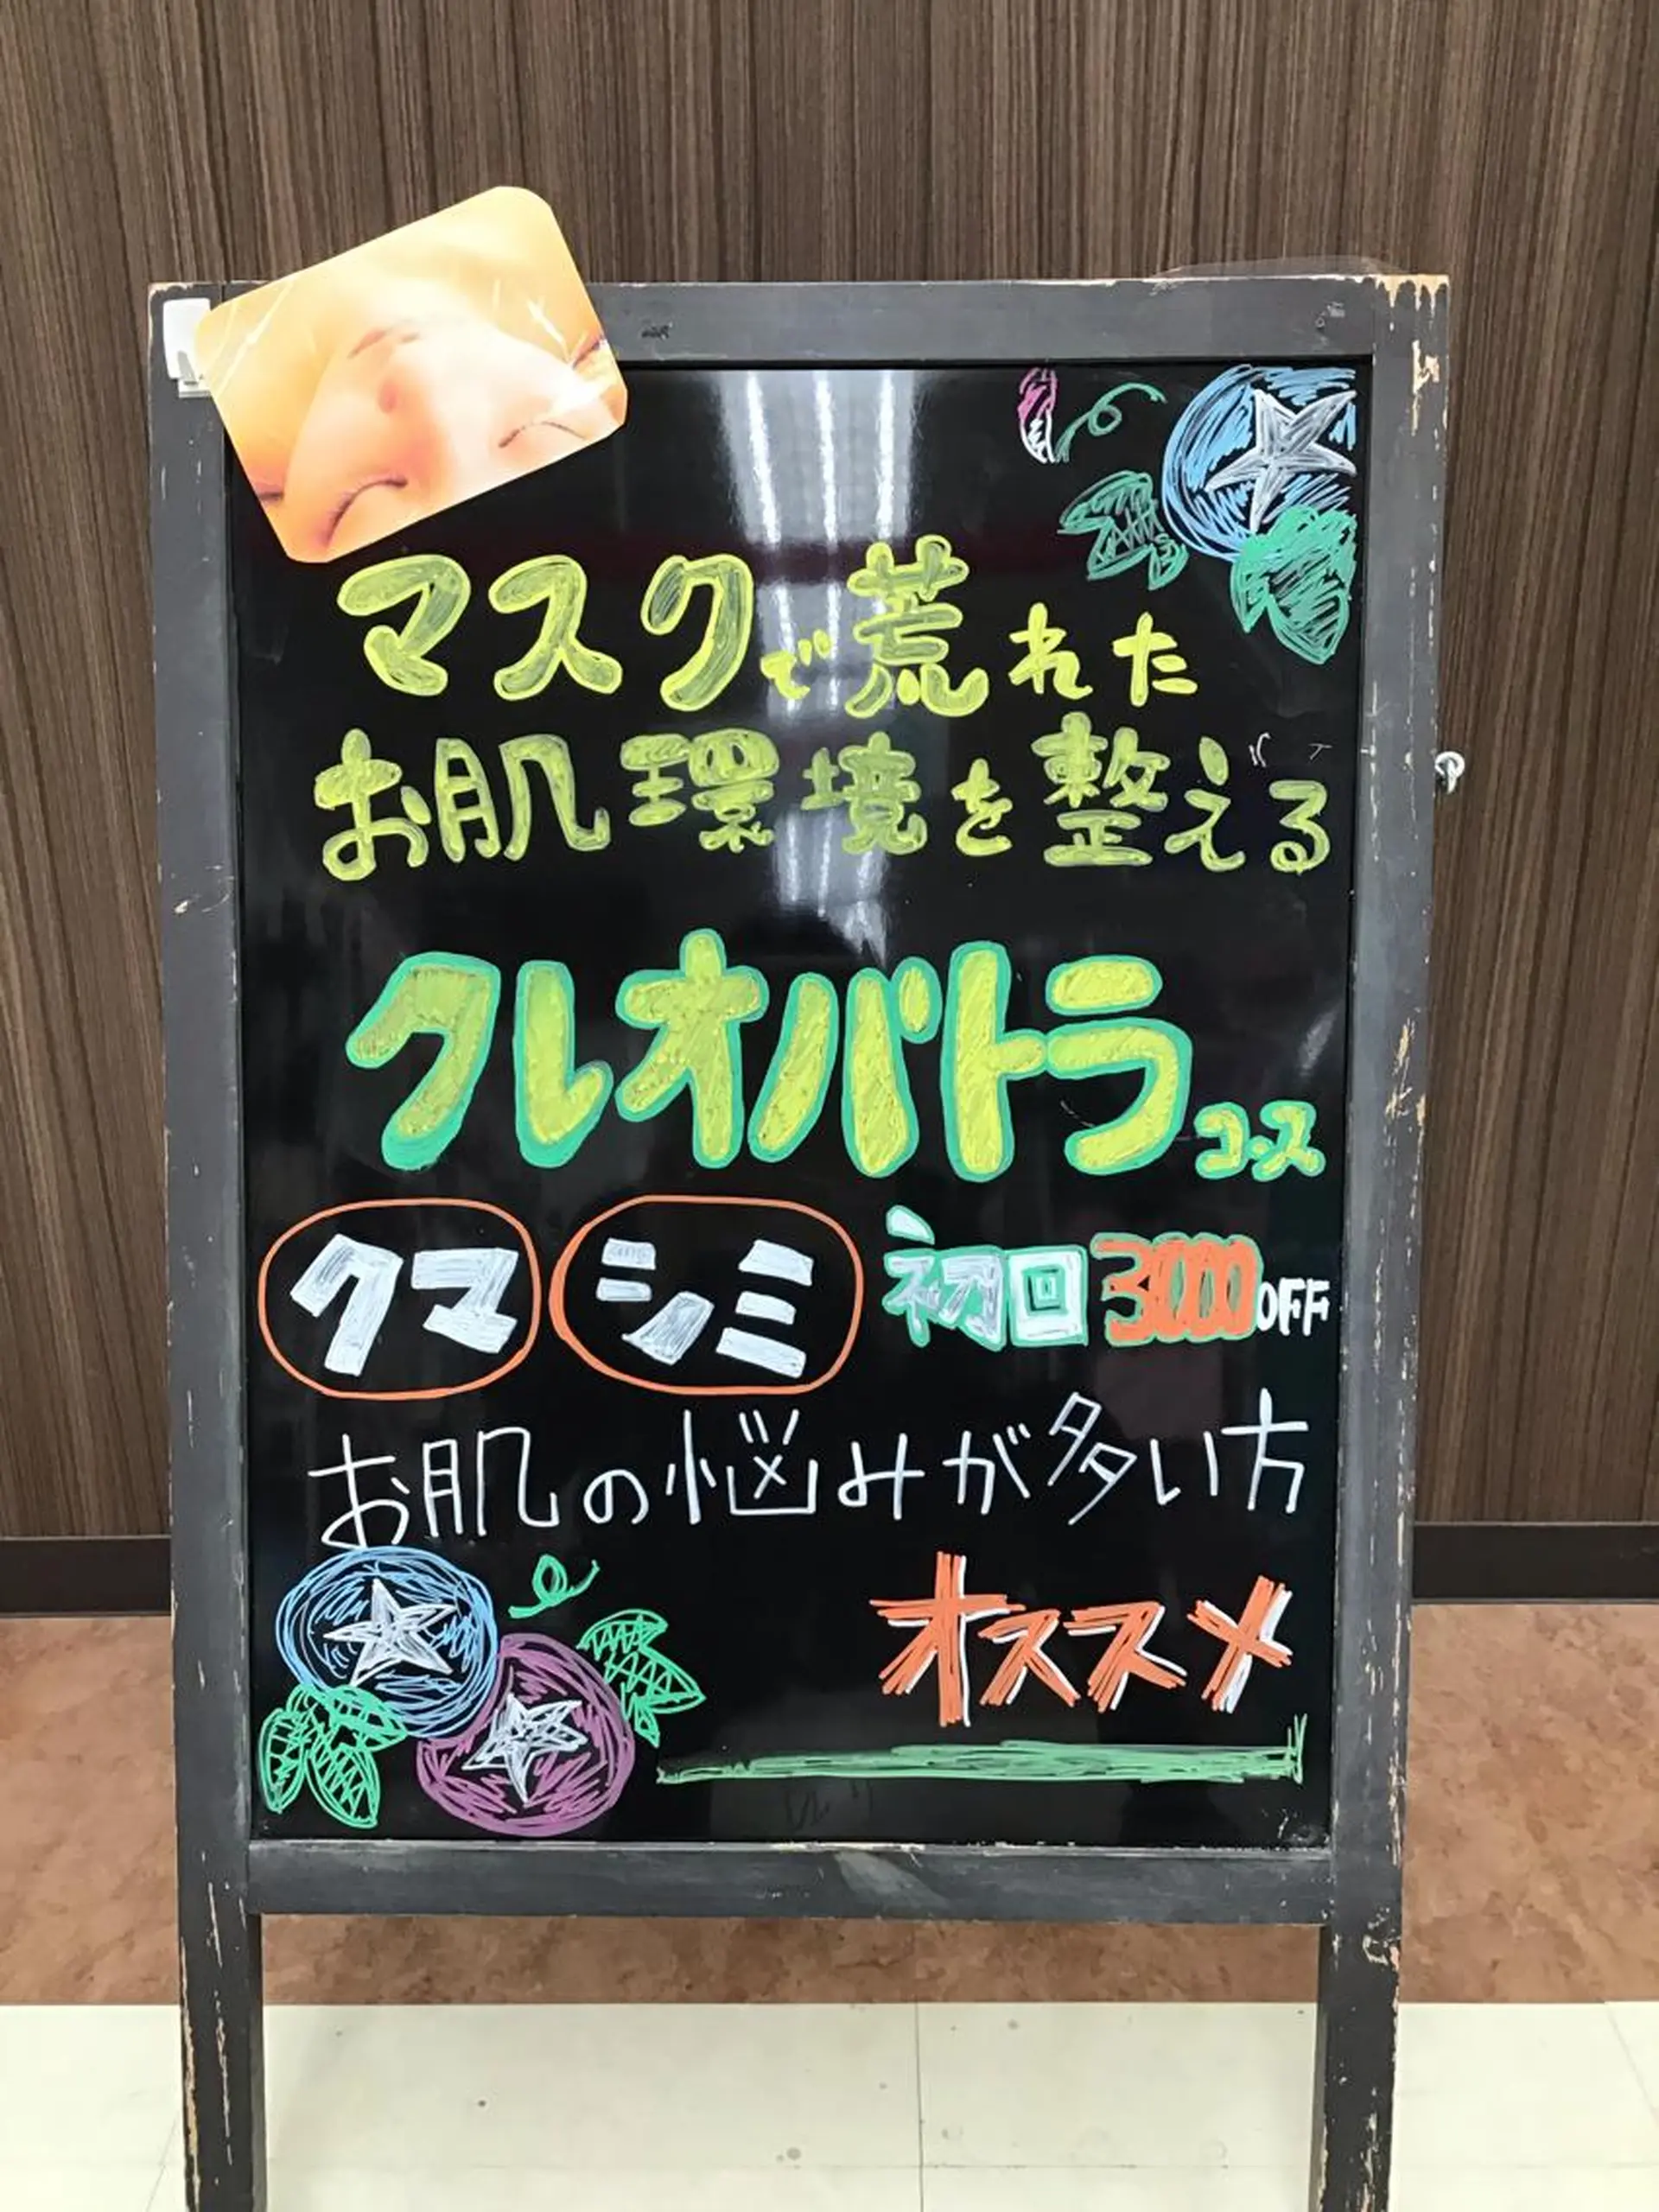 マスクで荒れた
お肌環境を整える
クレオパトラコース
クマ シミ 初回3000OFF
お肌の悩みが多い方
オススメ